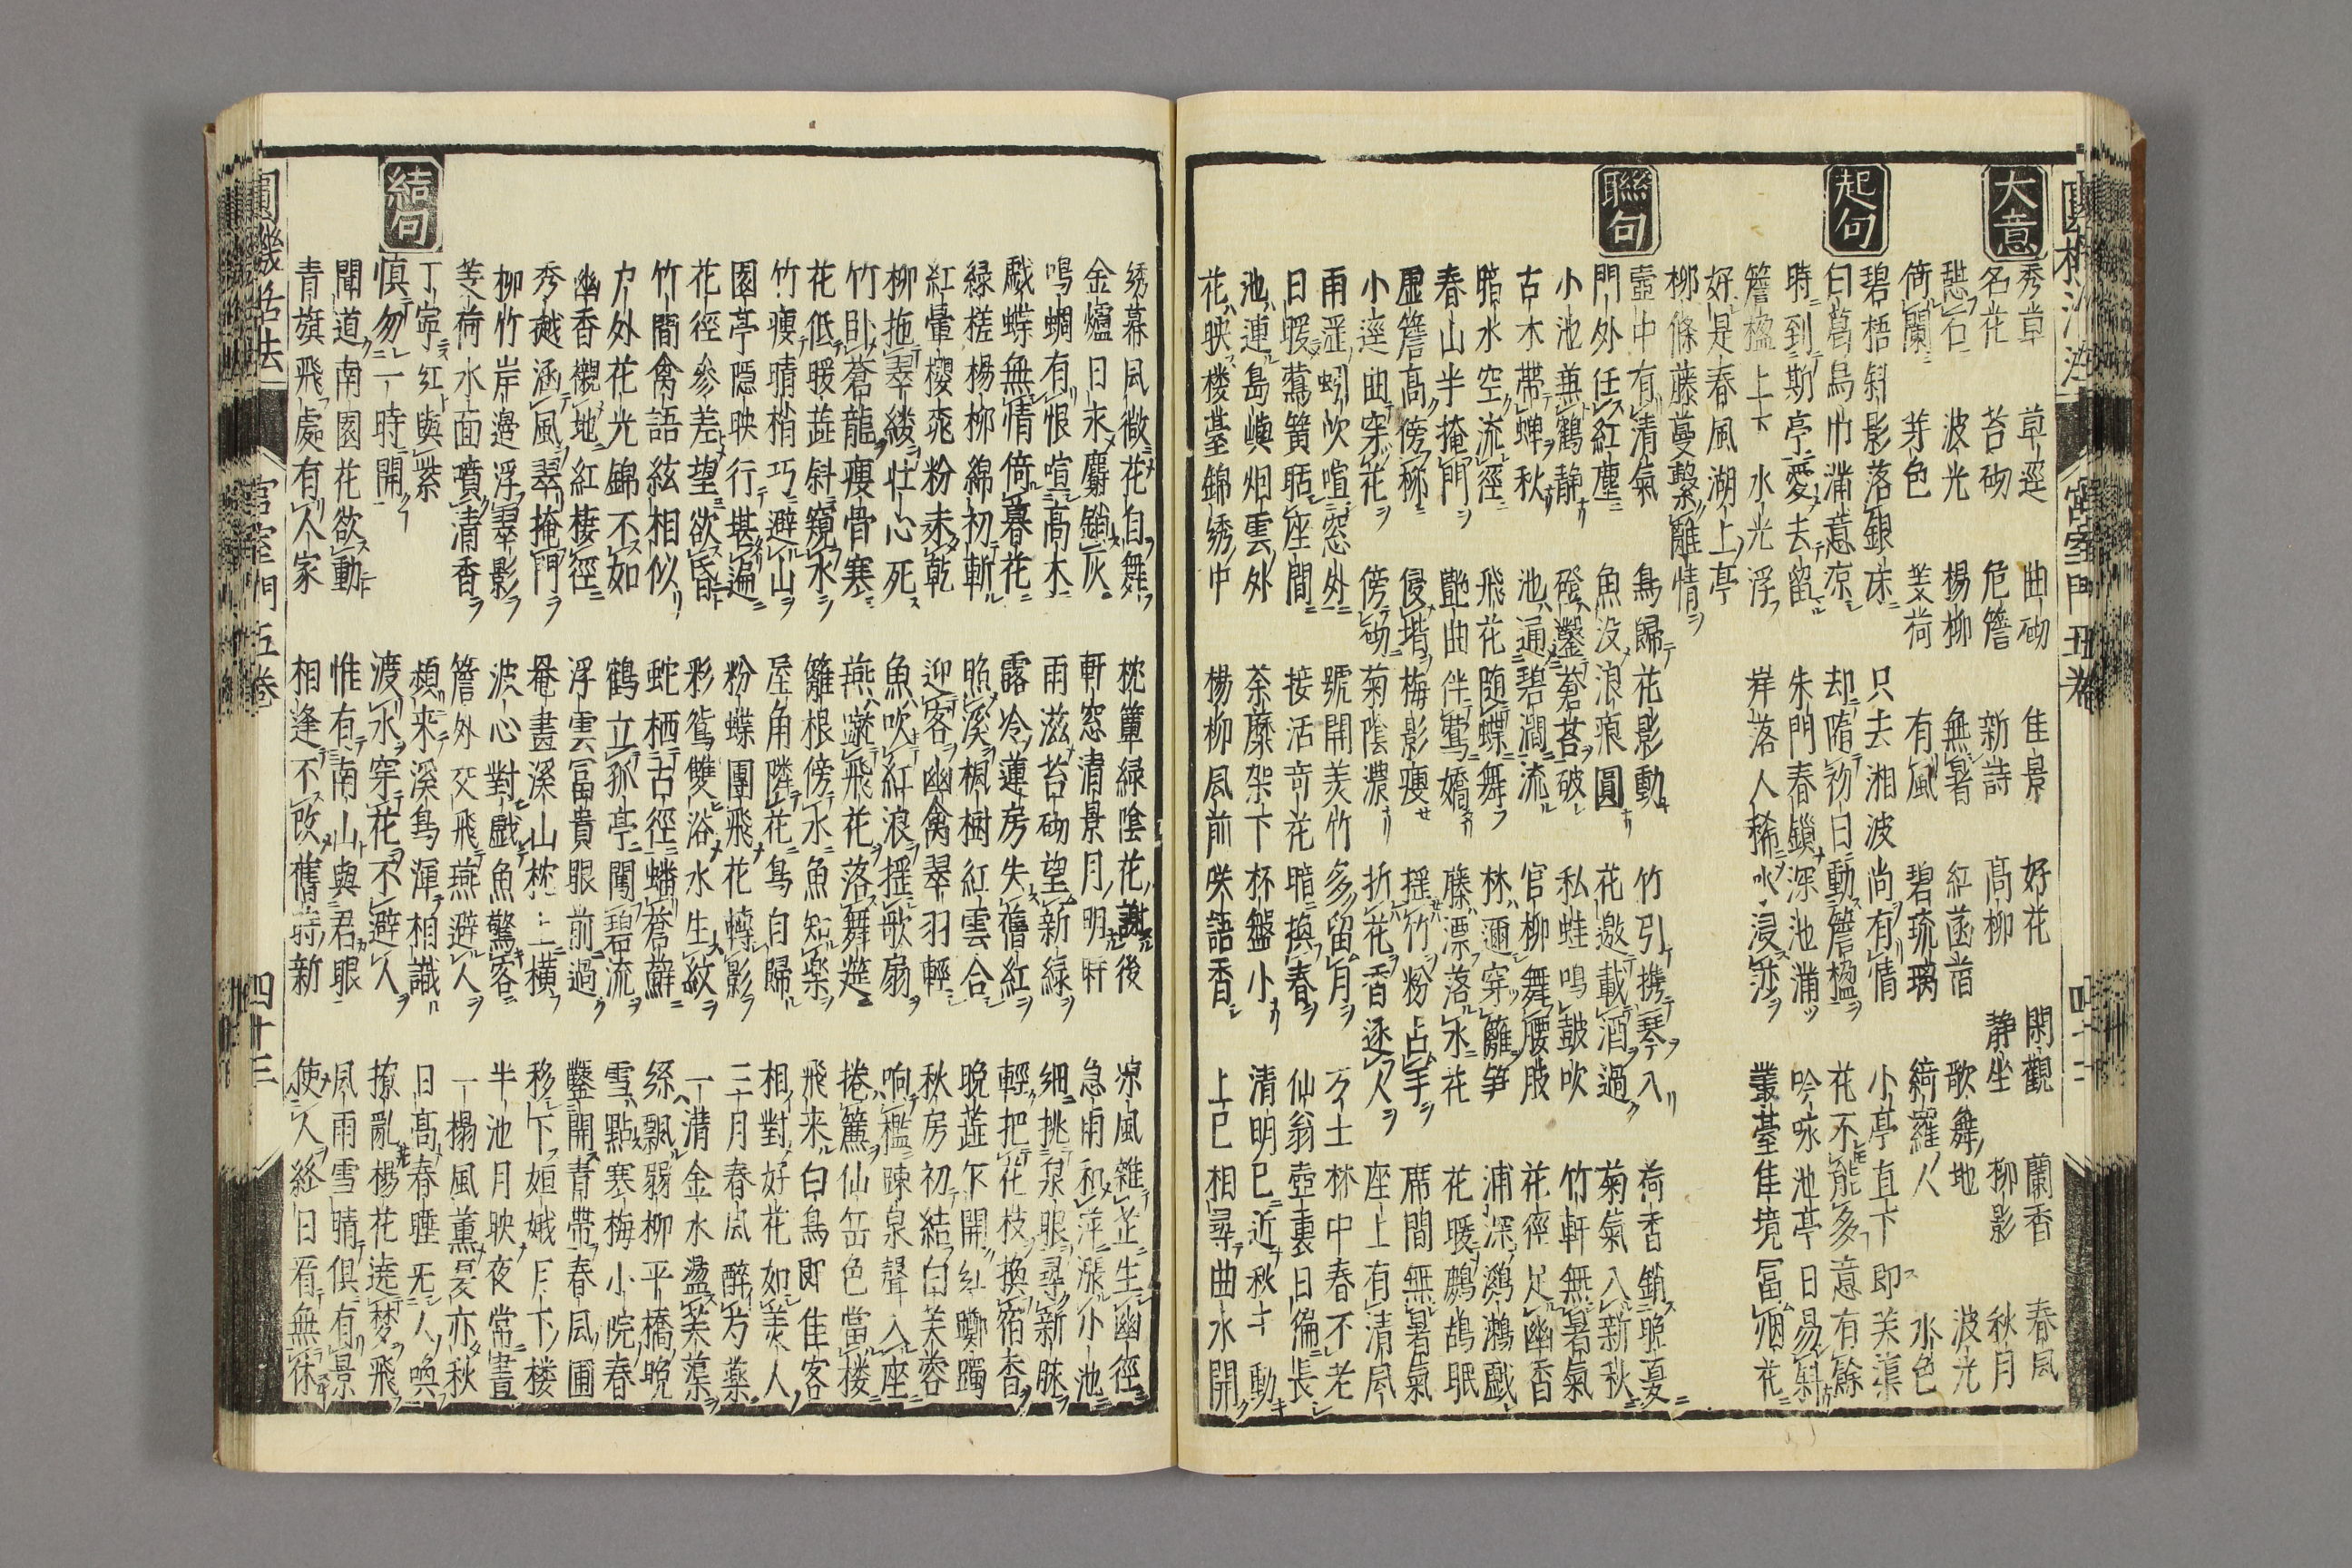 大意
秀草 草逕 曲砌 佳景 好花 閑觀 蘭香 春風
名花 苔砌 危簷 新詩 高柳 静坐 柳影 秋月
恐石 波光 楊柳 無暑 紅菡萏 歌舞地 波光
倚闌 芽色 芰荷 有風 碧琉璃 綺羅人 水色
起句
碧梧斜影落銀床 只去湘波尚有情 小亭直下即芙蕖
白葛烏巾滿意凉 却隋初日動簷楹 花不能多意有餘
時到斯亭愛去留 朱門春鎖深池滿 吟咏池亭日易斜
簷楹上下水光浮 岸落人稀水浸沙 叢臺佳境冨烟花
好是春風湖上亭
柳條藤蔓繋離情
聯句
壺中有清氣 鳥歸花影動 竹引携琴入 荷香銷晚夏
門外任紅塵 魚没浪痕圓 花邀載酒過 菊氣入新秋
小池兼鶴静 磴鑿蒼苔破 私蛙鳴鼓吹 竹軒無暑氣
古木帶蝉秋 池通碧澗流 官柳舞腰肢 花徑足幽香
暗水空流徑 飛花随蝶舞 林邇穿籬笋 浦深鸂鶒戯
春山半掩門 艶曲伴鶯嬌 藤漂落水花 花暖鷓鴣眠
虚簷高傍柳 侵堦梅影瘦 揺竹粉占手 席間無暑氣
小逕曲穿花 傍砌菊陰濃 折花香逐人 座上有清風
雨涩蚓吹喧窓外 號開美竹多留月 方士林中春不老
日暖鶯簧聒座間 接活奇花暗換春 仙翁壺裏日徧長
池連島嶼烟雲外 荼蘼架下杯盤小 清明已近秋千動
花映楼臺錦綉中 楊柳風前咲語香 上巳相尋曲水開
綉幕風微花自舞 枕簟緑陰花謝後 凉風雜芷生幽徑
金爐日永麝銷灰 軒窓清景月明時 急雨和萍漲小池
鳴蜩有恨喧高木 雨滋苔砌望新緑 細挑泉眼尋新脉
戯蝶無情倚暮花 露冷蓮房失舊紅 輕把花枝換宿香
緑槎楊柳綿初斬 照溪楓樹紅雲合 晚蕋下開紅躑躅
紅暈櫻桃粉未乾 迎客幽禽翠羽輕 秋房初結白芙蓉
柳拖翠縷壮心死 魚吹紅浪揺歌扇 响檻踈泉聲入座
竹卧蒼龍瘦骨寒 燕蹴飛花落舞筵 捲簾仙岳色當楼
花低暖蕋斜窺水 籬根傍水魚知楽 飛来白鳥即佳客
竹瘦晴梢巧避山 屋角隣花鳥自歸 相對好花如美人
園亭隠映行堪遍 粉蝶團飛花轉影 二月春風醉芍藥
花徑參差望欲昏 彩鴛雙浴水生紋 一溝金水盪芙蕖
竹間禽語絃相似 蛇栖古徑蟠蒼蘚 絲飄弱柳平橋晚
戸外花光錦不如 鶴立孤亭闖碧流 雪點寒梅小院春
幽香襯地紅棲徑 浮雲冨貴眼前過 鑿開青帶春風圃
秀樾涵風翠掩門 罨畫溪山枕上横 移下姮娥月下楼
柳竹岸邊浮翠影 波心對戯魚驚客 半池月映夜常晝
芰荷水面噴清香 簷外交飛燕避人 一榻風薫夏亦秋
丁寧紅與紫 頻来溪鳥渾相識 日高春睡无人喚
結句
慎勿一時開 渡水穿花不避人 撩亂楊花遶夢飛
聞道南園花欲動 惟有南山與君眼 風雨雪晴俱有景
青旗飛處有人家 相逢不改舊時新 使人終日看無休
圓機活法 宮室門五卷 四十三